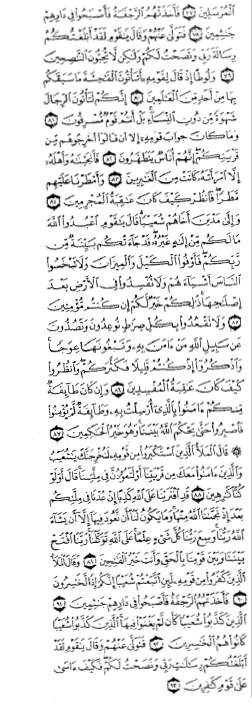 ٱلْمُرْسَلِينَ ٧٧ فَأَخَذَتْهُمُ ٱلرَّجْفَةُ فَأَصْبَحُوا۟ فِى دَارِهِمْ
جَٰثِمِينَ ٧٨ فَتَوَلَّىٰ عَنْهُمْ وَقَالَ يَٰقَوْمِ لَقَدْ أَبْلَغْتُكُمْ
رِسَالَةَ رَبِّى وَنَصَحْتُ لَكُمْ وَلَٰكِن لَّا تُحِبُّونَ ٱلنَّٰصِحِينَ
٧٩ وَلُوطًا إِذْ قَالَ لِقَوْمِهِۦٓ أَتَأْتُونَ ٱلْفَٰحِشَةَ مَا سَبَقَكُم
بِهَا مِنْ أَحَدٍ مِّنَ ٱلْعَٰلَمِينَ ٨٠ إِنَّكُمْ لَتَأْتُونَ ٱلرِّجَالَ
شَهْوَةً مِّن دُونِ ٱلنِّسَآءِ ۚ بَلْ أَنتُمْ قَوْمٌ مُّسْرِفُونَ ٨١
وَمَا كَانَ جَوَابَ قَوْمِهِۦٓ إِلَّآ أَن قَالُوٓا۟ أَخْرِجُوهُم مِّن
قَرْيَتِكُمْ ۖ إِنَّهُمْ أُنَاسٌ يَتَطَهَّرُونَ ٨٢ فَأَنجَيْنَٰهُ وَأَهْلَهُۥٓ
إِلَّا ٱمْرَأَتَهُۥ كَانَتْ مِنَ ٱلْغَٰبِرِينَ ٨٣ وَأَمْطَرْنَا عَلَيْهِم
مَّطَرًا ۖ فَٱنظُرْ كَيْفَ كَانَ عَٰقِبَةُ ٱلْمُجْرِمِينَ ٨٤
وَإِلَىٰ مَدْيَنَ أَخَاهُمْ شُعَيْبًا ۗ قَالَ يَٰقَوْمِ ٱعْبُدُوا۟ ٱللَّهَ
مَا لَكُم مِّنْ إِلَٰهٍ غَيْرُهُۥ ۖ قَدْ جَآءَتْكُم بَيِّنَةٌ مِّن
رَّبِّكُمْ ۖ فَأَوْفُوا۟ ٱلْكَيْلَ وَٱلْمِيزَانَ وَلَا تَبْخَسُوا۟
ٱلنَّاسَ أَشْيَآءَهُمْ وَلَا تُفْسِدُوا۟ فِى ٱلْأَرْضِ بَعْدَ
إِصْلَٰحِهَا ۚ ذَٰلِكُمْ خَيْرٌ لَّكُمْ إِن كُنتُم مُّؤْمِنِينَ
٨٥ وَلَا تَقْعُدُوا۟ بِكُلِّ صِرَٰطٍ تُوعِدُونَ وَتَصُدُّونَ
عَن سَبِيلِ ٱللَّهِ مَنْ ءَامَنَ بِهِۦ وَتَبْغُونَهَا عِوَجًا ۚ
وَٱذْكُرُوٓا۟ إِذْ كُنتُمْ قَلِيلًا فَكَثَّرَكُمْ ۖ وَٱنظُرُوا۟
كَيْفَ كَانَ عَٰقِبَةُ ٱلْمُفْسِدِينَ ٨٦ وَإِن كَانَ طَآئِفَةٌ
مِّنكُمْ ءَامَنُوا۟ بِٱلَّذِىٓ أُرْسِلْتُ بِهِۦ وَطَآئِفَةٌ لَّمْ يُؤْمِنُوا۟
فَٱصْبِرُوا۟ حَتَّىٰ يَحْكُمَ ٱللَّهُ بَيْنَنَا ۚ وَهُوَ خَيْرُ ٱلْحَٰكِمِينَ ٨٧
۞ قَالَ ٱلْمَلَأُ ٱلَّذِينَ ٱسْتَكْبَرُوا۟ مِن قَوْمِهِۦ لَنُخْرِجَنَّكَ يَٰشُعَيْبُ
وَٱلَّذِينَ ءَامَنُوا۟ مَعَكَ مِن قَرْيَتِنَآ أَوْ لَتَعُودُنَّ فِى مِلَّتِنَا ۚ قَالَ أَوَلَوْ
كُنَّا كَٰرِهِينَ ٨٨ قَدِ ٱفْتَرَيْنَا عَلَى ٱللَّهِ كَذِبًا إِنْ عُدْنَا فِى مِلَّتِكُم
بَعْدَ إِذْ نَجَّىٰنَا ٱللَّهُ مِنْهَا ۚ وَمَا يَكُونُ لَنَآ أَن نَّعُودَ فِيهَآ إِلَّآ أَن يَشَآءَ
ٱللَّهُ رَبُّنَا ۚ وَسِعَ رَبُّنَا كُلَّ شَىْءٍ عِلْمًا ۚ عَلَى ٱللَّهِ تَوَكَّلْنَا ۚ رَبَّنَا ٱفْتَحْ
بَيْنَنَا وَبَيْنَ قَوْمِنَا بِٱلْحَقِّ وَأَنتَ خَيْرُ ٱلْفَٰتِحِينَ ٨٩ وَقَالَ ٱلْمَلَأُ
ٱلَّذِينَ كَفَرُوا۟ مِن قَوْمِهِۦ لَئِنِ ٱتَّبَعْتُمْ شُعَيْبًا إِنَّكُمْ إِذًا لَّخَٰسِرُونَ
٩٠ فَأَخَذَتْهُمُ ٱلرَّجْفَةُ فَأَصْبَحُوا۟ فِى دَارِهِمْ جَٰثِمِينَ ٩١
ٱلَّذِينَ كَذَّبُوا۟ شُعَيْبًا كَأَن لَّمْ يَغْنَوْا۟ فِيهَا ۚ ٱلَّذِينَ كَذَّبُوا۟ شُعَيْبًا
كَانُوا۟ هُمُ ٱلْخَٰسِرِينَ ٩٢ فَتَوَلَّىٰ عَنْهُمْ وَقَالَ يَٰقَوْمِ لَقَدْ
أَبْلَغْتُكُمْ رِسَٰلَٰتِ رَبِّى وَنَصَحْتُ لَكُمْ ۖ فَكَيْفَ ءَاسَىٰ
عَلَىٰ قَوْمٍ كَٰفِرِينَ ٩٣